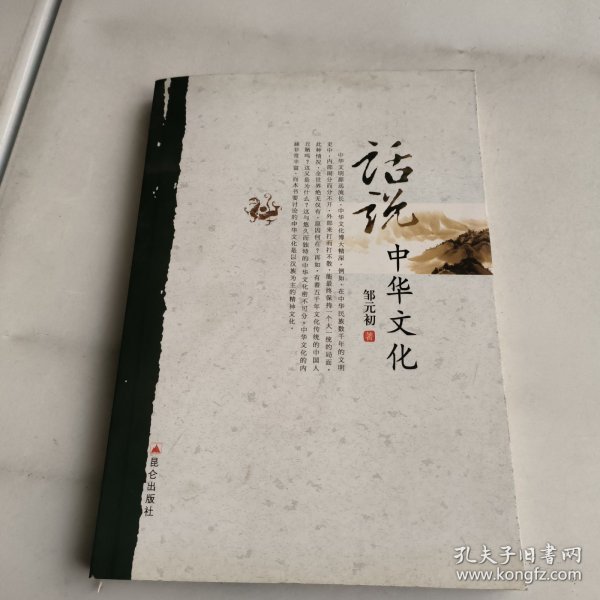 话说
中华文化
邹元初 著
中华文明源远流长，中华文化博大精深。例如，在中华民族数千年的文明
史中，内部闹分而分不开，外部来打而打不散，能最终保持一个大一统的局面。
此种情况，全世界绝无仅有。原因何在？再如，有着五千年文化传统的中国人
丑陋吗？这又是为什么？这与悠久而独特的中华文化密不可分。中华文化的内
涵非常丰富，而本书要讨论的中华文化是以汉族为主的精神文化。
昆仑出版社
孔夫子旧书网
www.kongfz.com